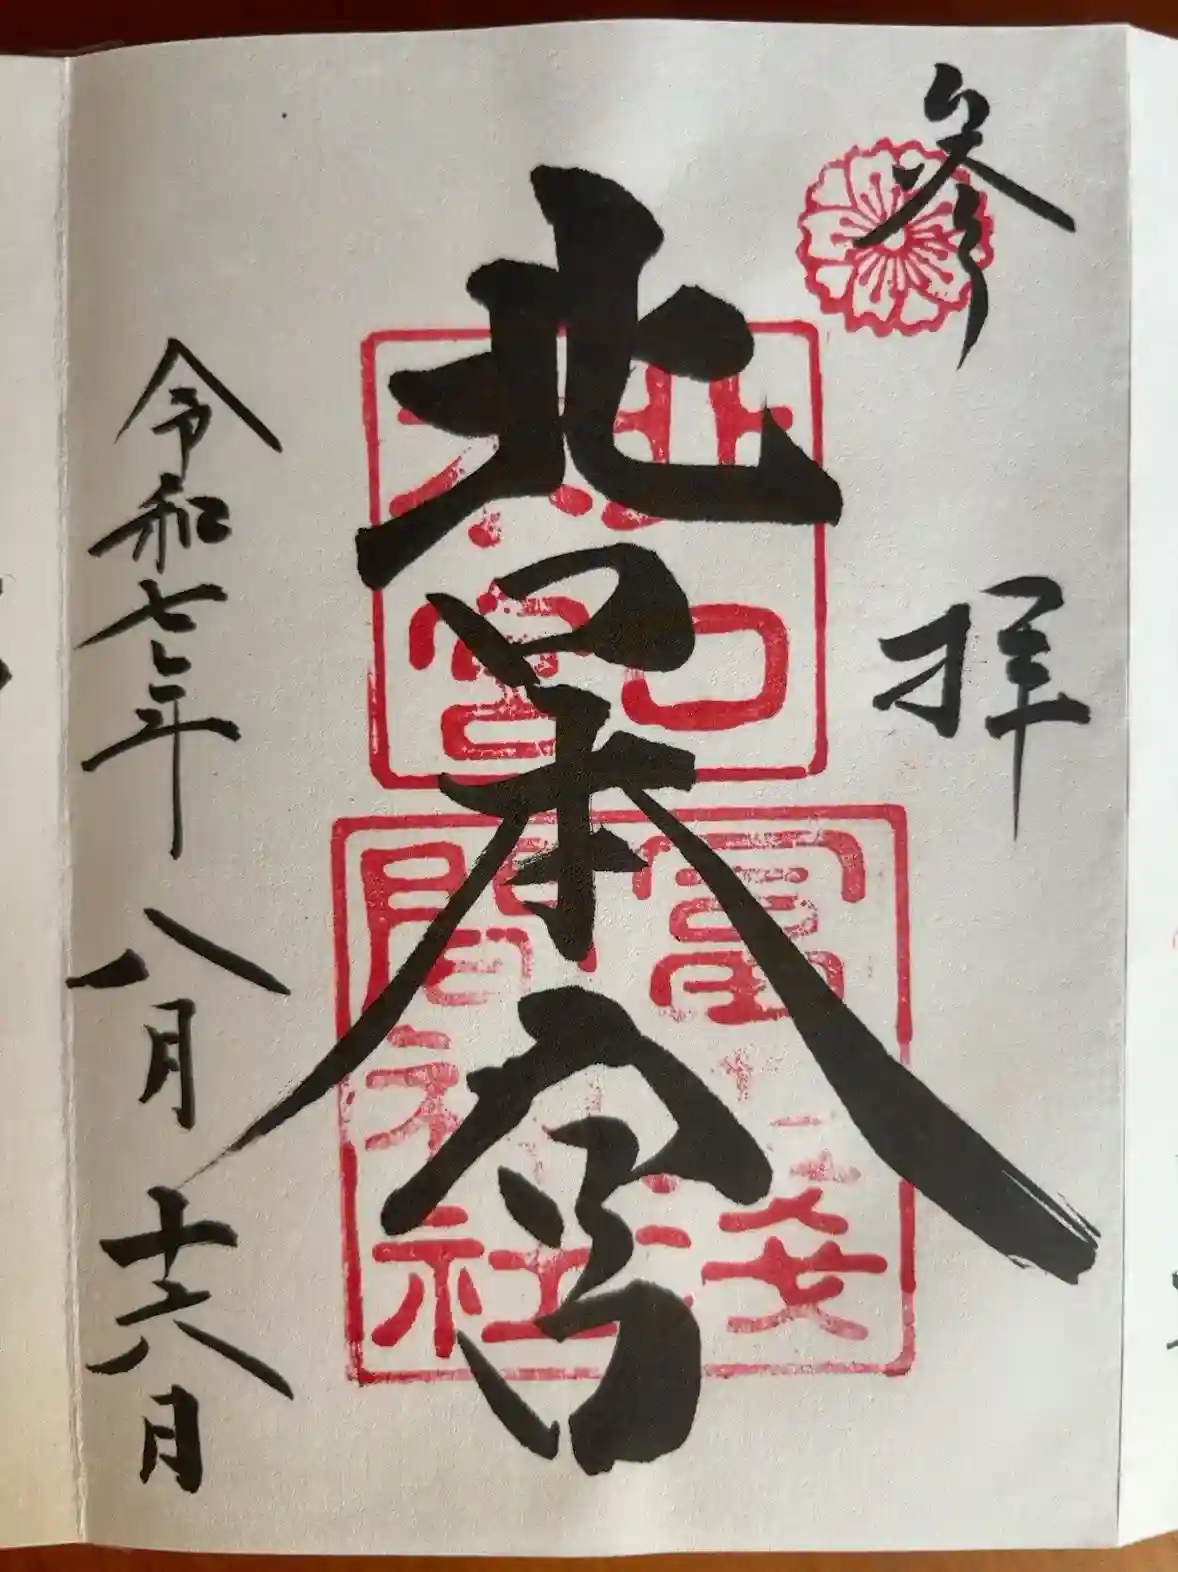 参拝
北口本宮
令和七年八月十六日
北口
本宮
間神社